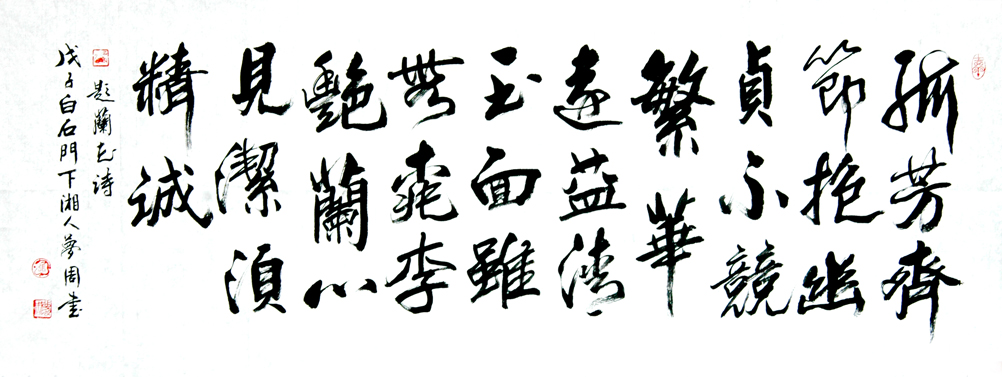 孤芳齊
節抱幽
貞不競
繁華
遠益清
玉面雖
無桃李
艷蘭心
見潔湏
精誠
題蘭花詩
戊子白石門下湘人夢周書